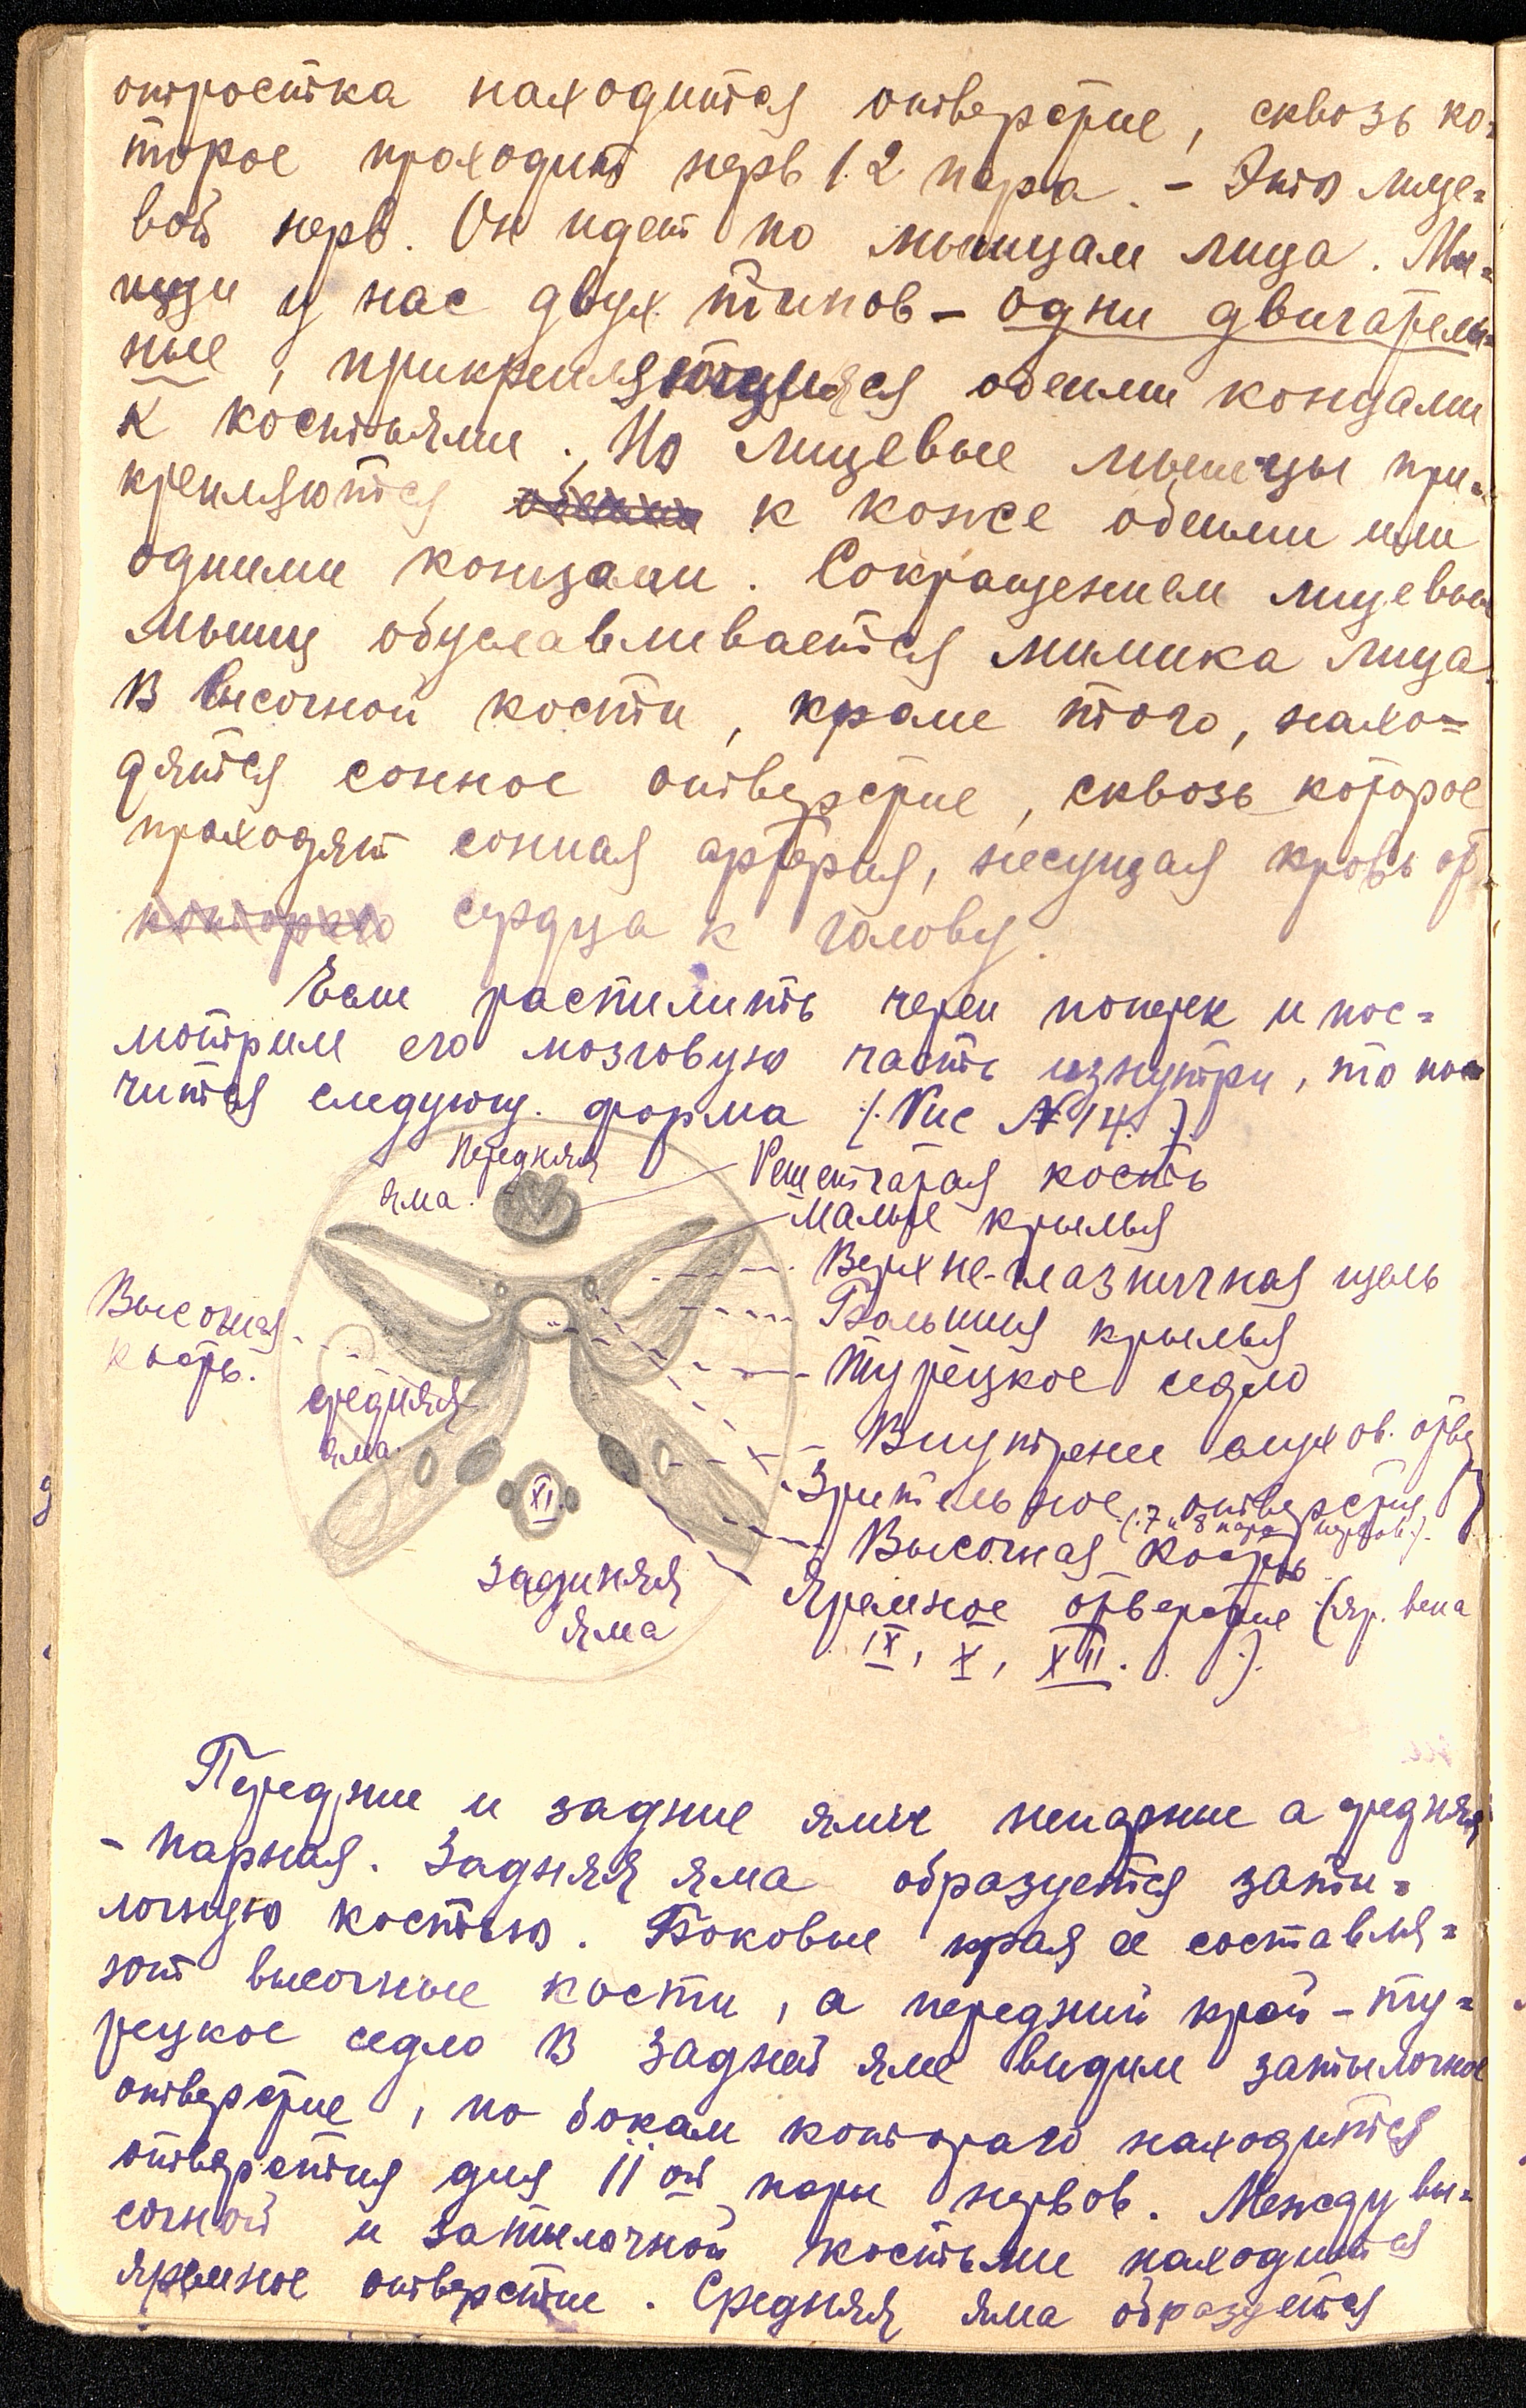 отростка находится отверстие, сквозь ко=
торое проходит нерв 12 пара. – Это лице=
вой нерв. Он идет по мышцам лица. Мы=
шцы у нас двух типов – одни двигатель=
ные, прикрепляющияся обеими концами
к костьями. Но лицевые мышцы при=
крепляются к коже обеими или
одними концами. Сокращением лицевых
мышц обуславливается мимика лица.
В височной кости, кроме того, нахо=
дятся сонное отверстие, сквозь которое
проходят сонная артерия, несущая кровь от
которого сердца к голову.
Если распилить череп поперек и пос=
мотрим его мозговую часть изнутри, то пол
чится следующ. форма (Рис № 14.)
Передняя
яма.
Решетчатая кость
Малые крылья
Верхне-глазничная щель
Большия крылья
Турецкое седло
Височная
кость.
средняя
яма.
Внутренне слухов. отве
Зрительное отверстие
(7 и 8 пара нервов.)
Височная кость
XI.
Яремное отверстие (яр. вена
IX, X, XII.)
задняяя
яма
Передние и задние ямы непарные а средняя
– парная. Задняя яма образуется заты=
лочную костью. Боковые края ее составля=
ют височные кости, а передний край – ту=
рецкое седло В задней яме видим затылочное
отверстие, по бокам которого находится
отверстия для 11 ой пары нервов. Между ви=
сочной и затылочной костьми находится
яремное отверстие. Средняя яма образуется